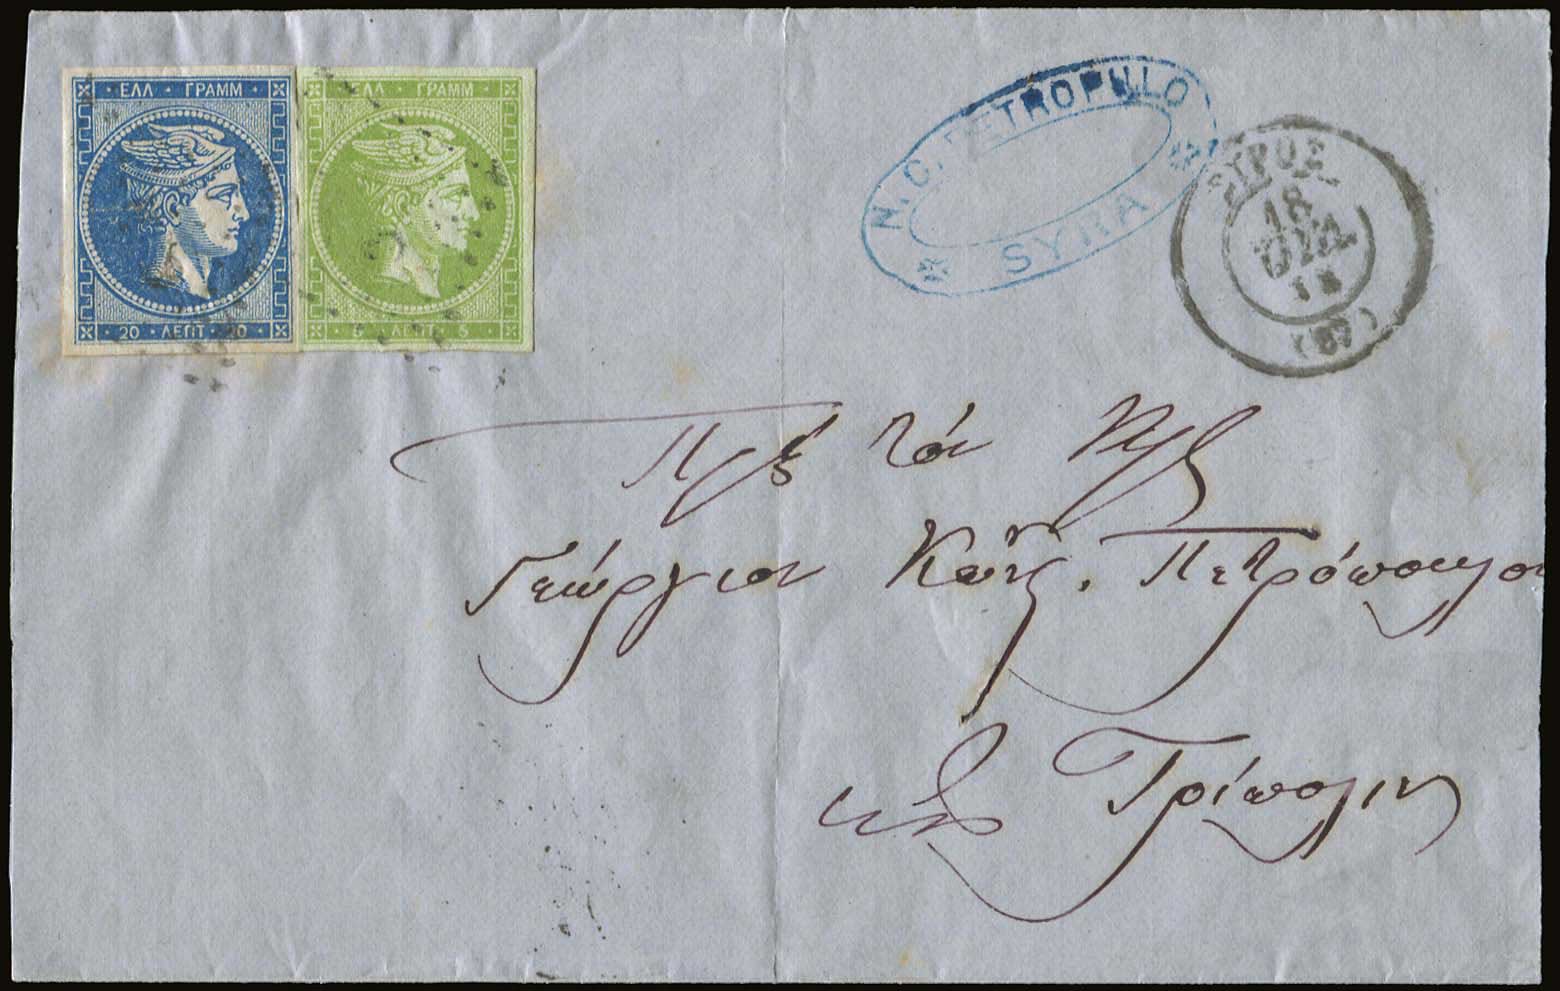 ΕΛΛ · ΓΡΑΜΜ
20 · ΛΕΠΤ · 20
ΕΛΛ · ΓΡΑΜΜ
5 · ΛΕΠΤ · 5
N. C. PETROPULO
SYRA
ΣΥΡΟΣ
18
(67)
τὸν
Γεώργιον Κων. Πετρόπουλον
Τρίπολιν